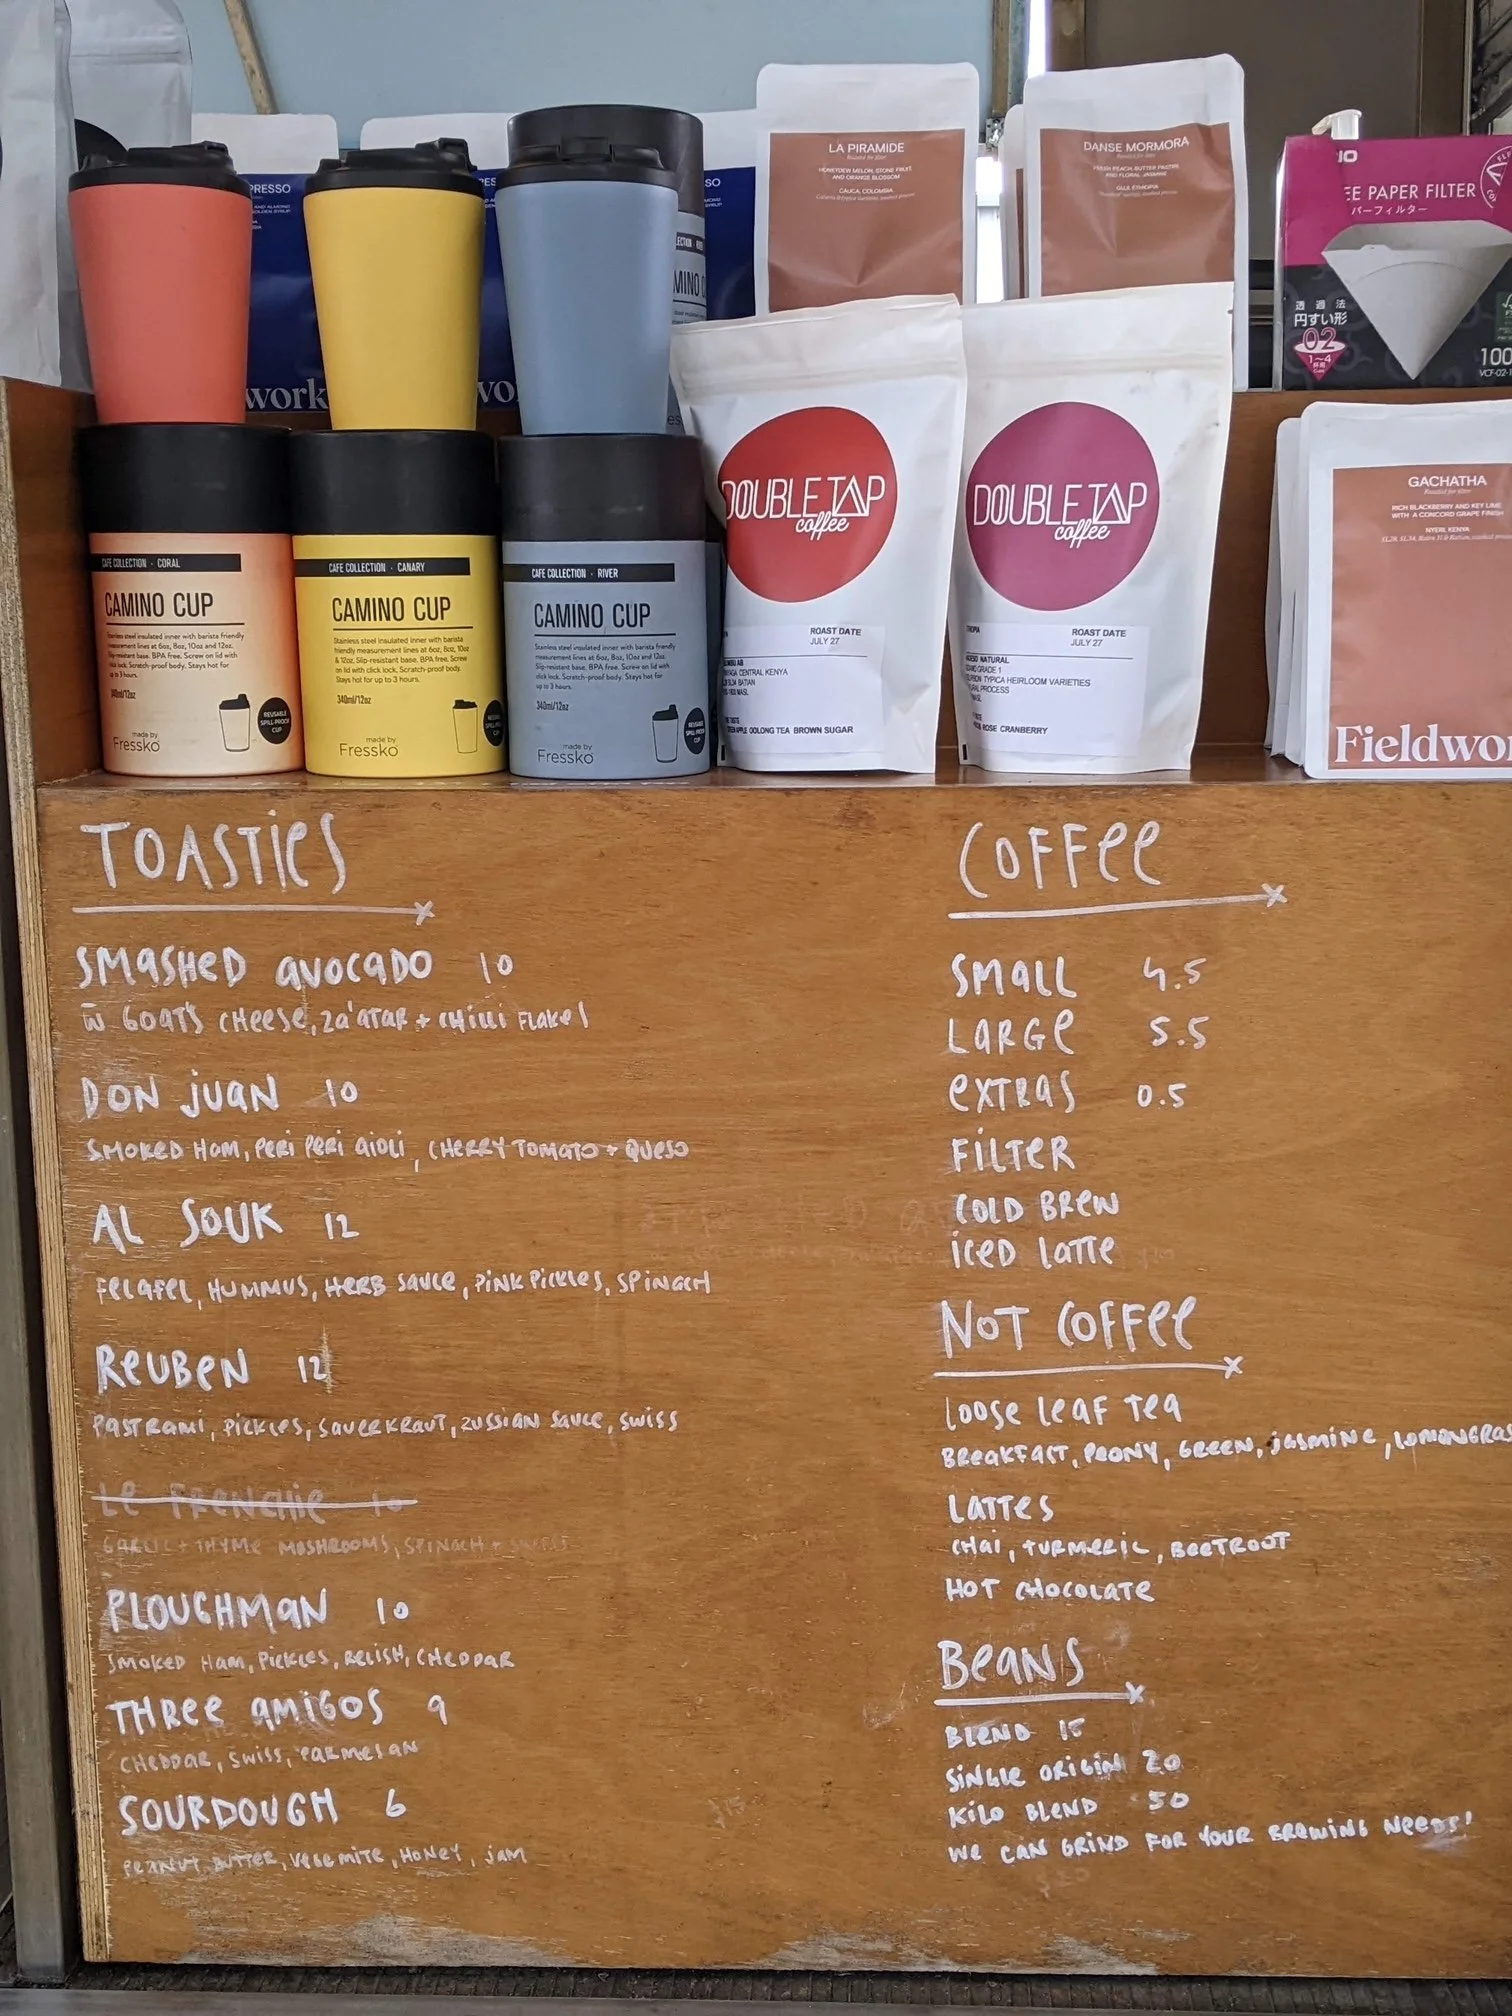 LA PIRAMIDE
Roasted for filter
HONEYDEW MELON, STONE FRUIT
AND ORANGE BLOSSOM
CAUCA, COLOMBIA
DANSE MORMORA
Roasted for filter
FRESH PEACH, BUTTER PASTRY,
AND FLORAL JASMINE
GUJI, ETHIOPIA
IO
EE PAPER FILTER
パーフィルター
透過法
円すい形
02
1~4
100
VCF-02-1
PRESSO
work
wo
MINO
DOUBLE TAP
coffee
ROAST DATE
JULY 27
CENTRAL KENYA
BATIAN
OOLONG TEA BROWN SUGAR
DOUBLE TAP
coffee
ROAST DATE
JULY 27
NATURAL
GRADE 1
TYPICA HEIRLOOM VARIETIES
PROCESS
ROSE CRANBERRY
GACHATHA
Roasted for filter
RICH BLACKBERRY AND KEY LIME
WITH A CONCORD GRAPE FINISH
NYERI, KENYA
Fieldwor
CAFE COLLECTION · CORAL
CAMINO CUP
Stainless steel insulated inner with barista friendly
measurement lines at 6oz, 8oz, 10oz and 12oz.
Slip-resistant base. BPA free. Screw on lid with
click lock. Scratch-proof body. Stays hot for
up to 3 hours.
340ml/12oz
made by
Fressko
REUSABLE
SPILL-PROOF
CUP
CAFE COLLECTION · CANARY
CAMINO CUP
Stainless steel insulated inner with barista
friendly measurement lines at 6oz, 8oz, 10oz
& 12oz. Slip-resistant base. BPA free. Screw
on lid with click lock. Scratch-proof body.
Stays hot for up to 3 hours.
340ml/12oz
made by
Fressko
CAFE COLLECTION · RIVER
CAMINO CUP
Stainless steel insulated inner with barista friendly
measurement lines at 6oz, 8oz, 10oz and 12oz.
Slip-resistant base. BPA free. Screw on lid with
click lock. Scratch-proof body. Stays hot for
up to 3 hours.
340ml/12oz
made by
Fressko
TOASTIES
SMASHED AVOCADO 10
W GOAT'S CHEESE, ZA'ATAR + CHILLI FLAKES
DON JUAN 10
SMOKED HAM, PERI PERI AIOLI, CHERRY TOMATO + QUESO
AL SOUK 12
FELAFEL, HUMMUS, HERB SAUCE, PINK PICKLES, SPINACH
REUBEN 12
PASTRAMI, PICKLES, SAUERKRAUT, RUSSIAN SAUCE, SWISS
LE FRENCHIE 10
GARLIC + THYME MUSHROOMS, SPINACH + SWISS
PLOUGHMAN 10
SMOKED HAM, PICKLES, RELISH, CHEDDAR
THREE AMIGOS 9
CHEDDAR, SWISS, PARMESAN
SOURDOUGH 6
PEANUT BUTTER, VEGEMITE, HONEY, JAM
COFFEE
SMALL 4.5
LARGE 5.5
EXTRAS 0.5
FILTER
COLD BREW
ICED LATTE
NOT COFFEE
LOOSE LEAF TEA
BREAKFAST, PEONY, GREEN, JASMINE, LEMONGRAS
LATTES
CHAI, TURMERIC, BEETROOT
HOT CHOCOLATE
BEANS
BLEND 15
SINGLE ORIGIN 20
KILO BLEND 50
WE CAN GRIND FOR YOUR BREWING NEEDS!